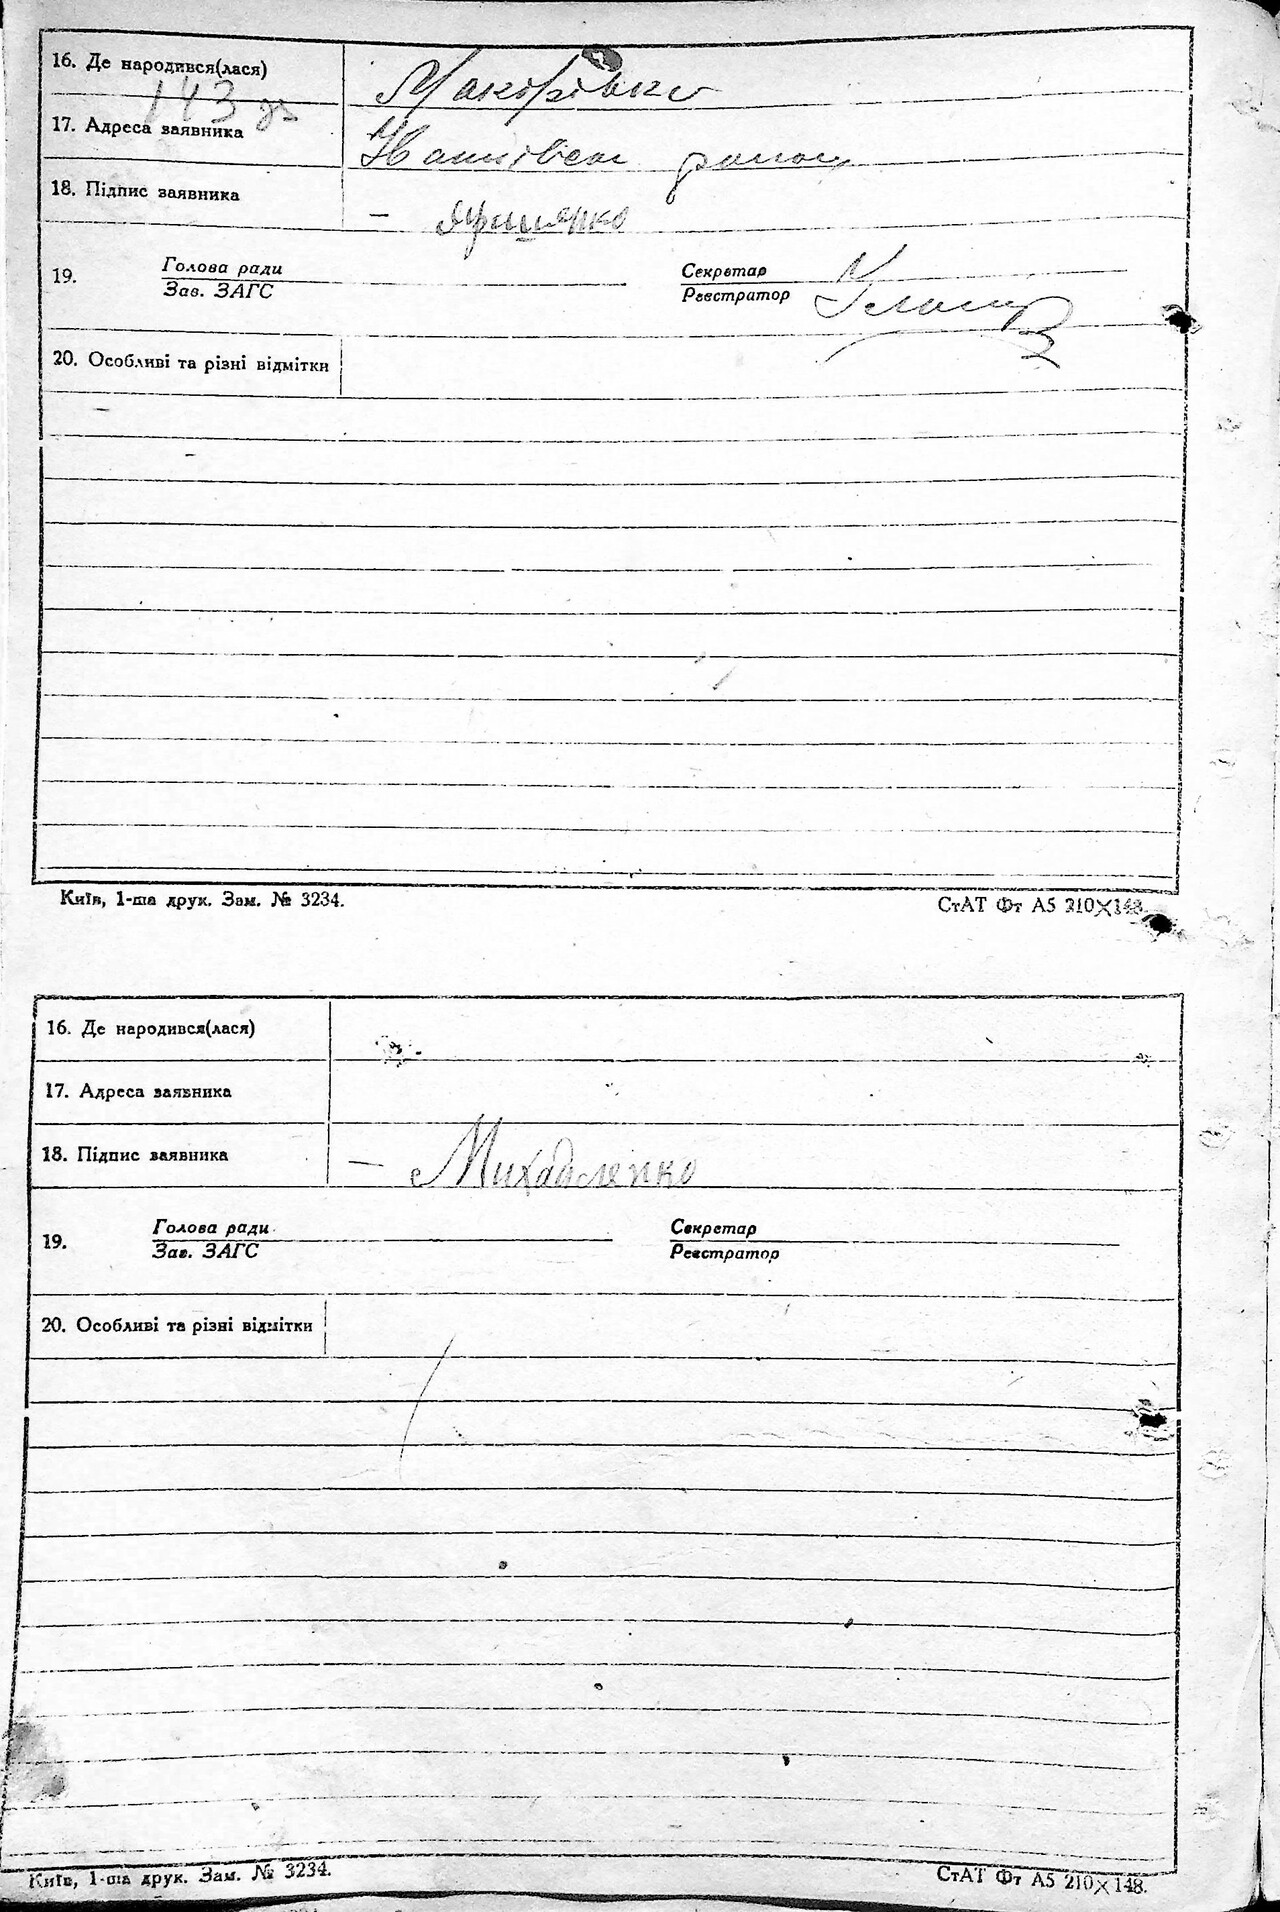 16. Де народився(лася)
143 зв
17. Адреса заявника
18. Підпис заявника
19. Голова ради
Зав. ЗАГС
Секретар
Реєстратор
20. Особливі та різні відмітки
Київ, 1-ша друк. Зам. № 3234.
СтАТ Фт А5 210×148.
16. Де народився(лася)
17. Адреса заявника
18. Підпис заявника — Михайленко
19. Голова ради
Зав. ЗАГС
Секретар
Реєстратор
20. Особливі та різні відмітки
Київ, 1-ша друк. Зам. № 3234.
СтАТ Фт А5 210×148.